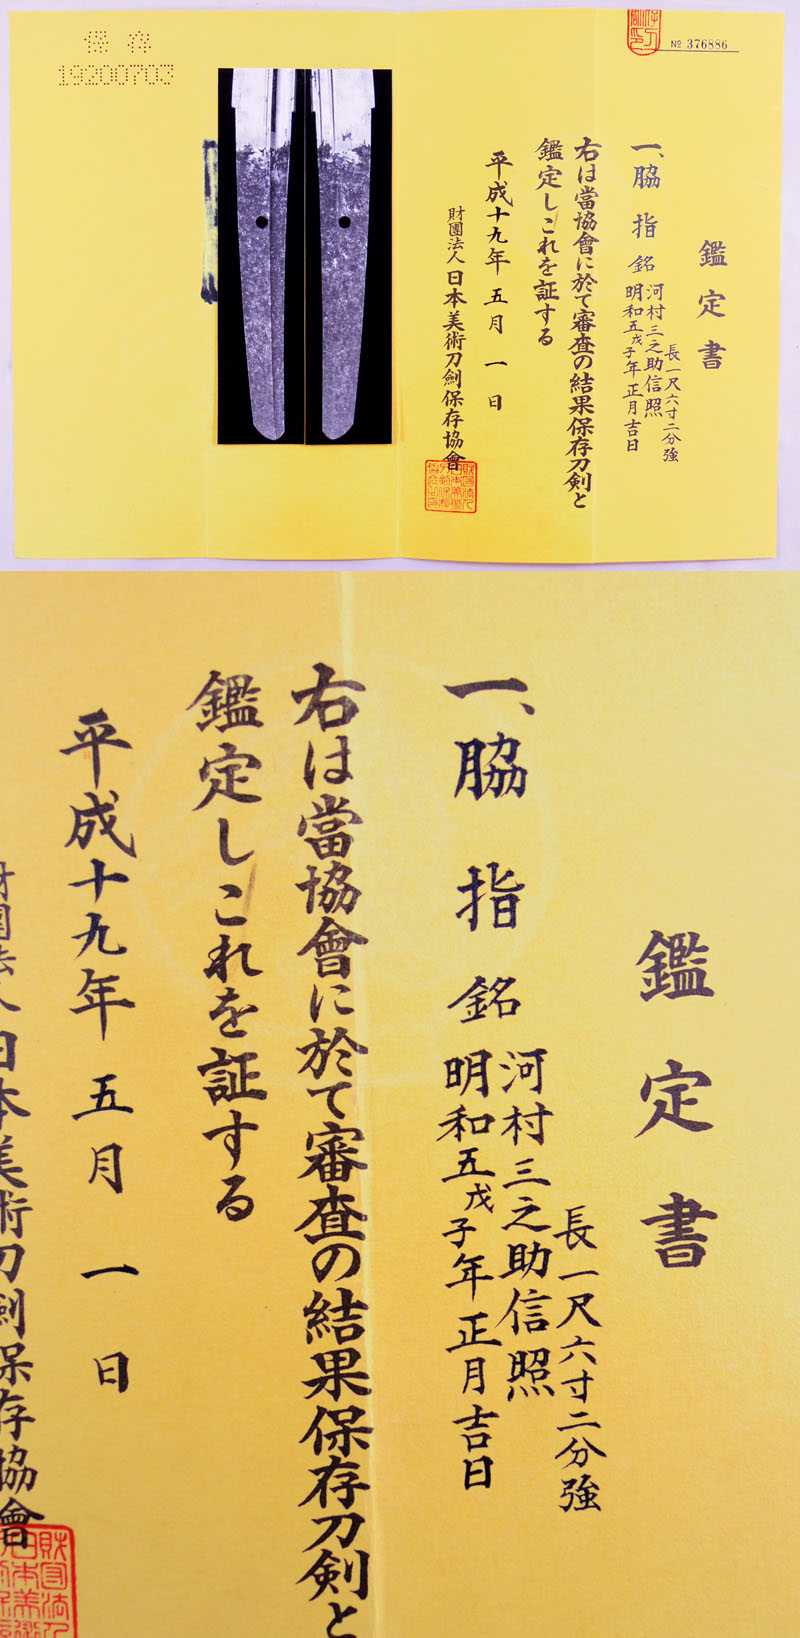 № 376886
鑑定書
一、脇指 銘 河村三之助信照
明和五戊子年正月吉日
長一尺六寸二分強
右は當協會に於て審査の結果保存刀剣と
鑑定しこれを証する
平成十九年五月一日
財團法人日本美術刀劍保存協會
保存
19200703
鑑定書
一、脇指 銘 河村三之助信照
明和五戊子年正月吉日
長一尺六寸二分強
右は當協會に於て審査の結果保存刀剣と
鑑定しこれを証する
平成十九年五月一日
財團法人日本美術刀劍保存協會